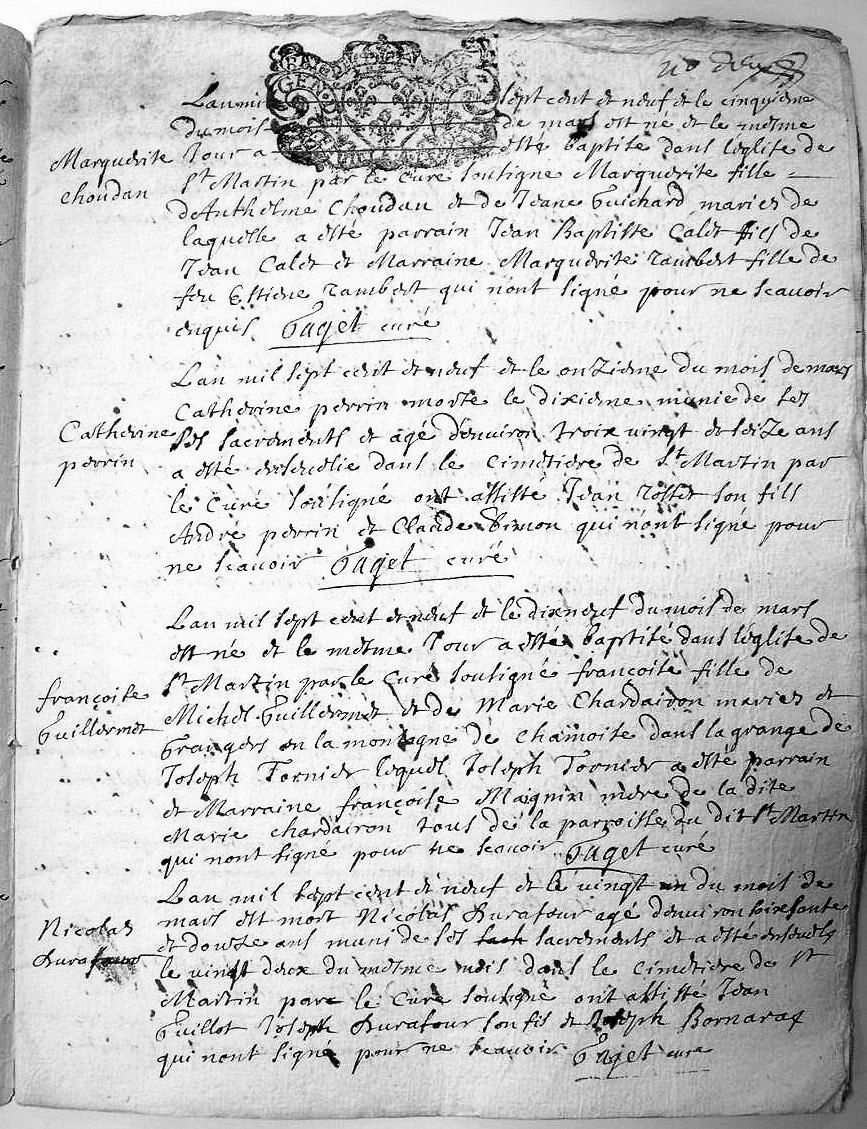 Lan mil sept cent et neuf et le cinquieme
du mois de mars est né et le mesme
Marguerite
choudan
Jour a esté baptisé dans leglise de
St Martin par le curé soussigné Marguerite fille
dAnthelme Choudan et de Jeane Guichard mariez de
laquelle a esté parrain Jean Baptiste Calet fils de
Jean Calet et Marraine Marguerite Jambert fille de
feu Estiene Jambert qui nont signé pour ne scavoir
enquis Puget curé
Lan mil sept cent et neuf et le onzieme du mois de mars
Catherine
perrin
Catherine perrin morte le dixieme munie de ses
ses sacrements et agé denviron troix vingt et seize ans
a esté ensevelie dans le cimetiere de St Martin par
le curé sousigné ont assisté Jean rosset son fils
Andre perrin et Claude Simon qui nont signé pour
ne scavoir Puget curé
Lan mil sept cent et neuf et le dixneuf du mois de mars
est né et le mesme Jour a esté baptisé dans léglise de
St Martin par le curé sousigné françoise fille de
françoise
Guillermet
Michel Guillermet et de Marie Chardairon mariez et
Grangers en la montagne de chamoise dans la grange de
Joseph Tornier lequel Joseph Tornier a esté parrain
et Marraine françoise Maignin mere de la dite
Marie chardairon tous de la parroisse du dit St Martin
qui nont signé pour ne scavoir Puget curé
Lan mil sept cent et neuf et le vingt un du mois de
Nicolas
Durafour
mars est mort Nicolas Durafour agé denviron soixsante
et douze ans muni de ses sacrements et a esté ensevely
le vingt deux du mesme mois dans le cimetiere de St
Martin par le curé sousigné ont assisté Jean
Guillot Joseph Durafour son fis et Joseph Bornarat
qui nont signé pour ne scavoir Puget curé